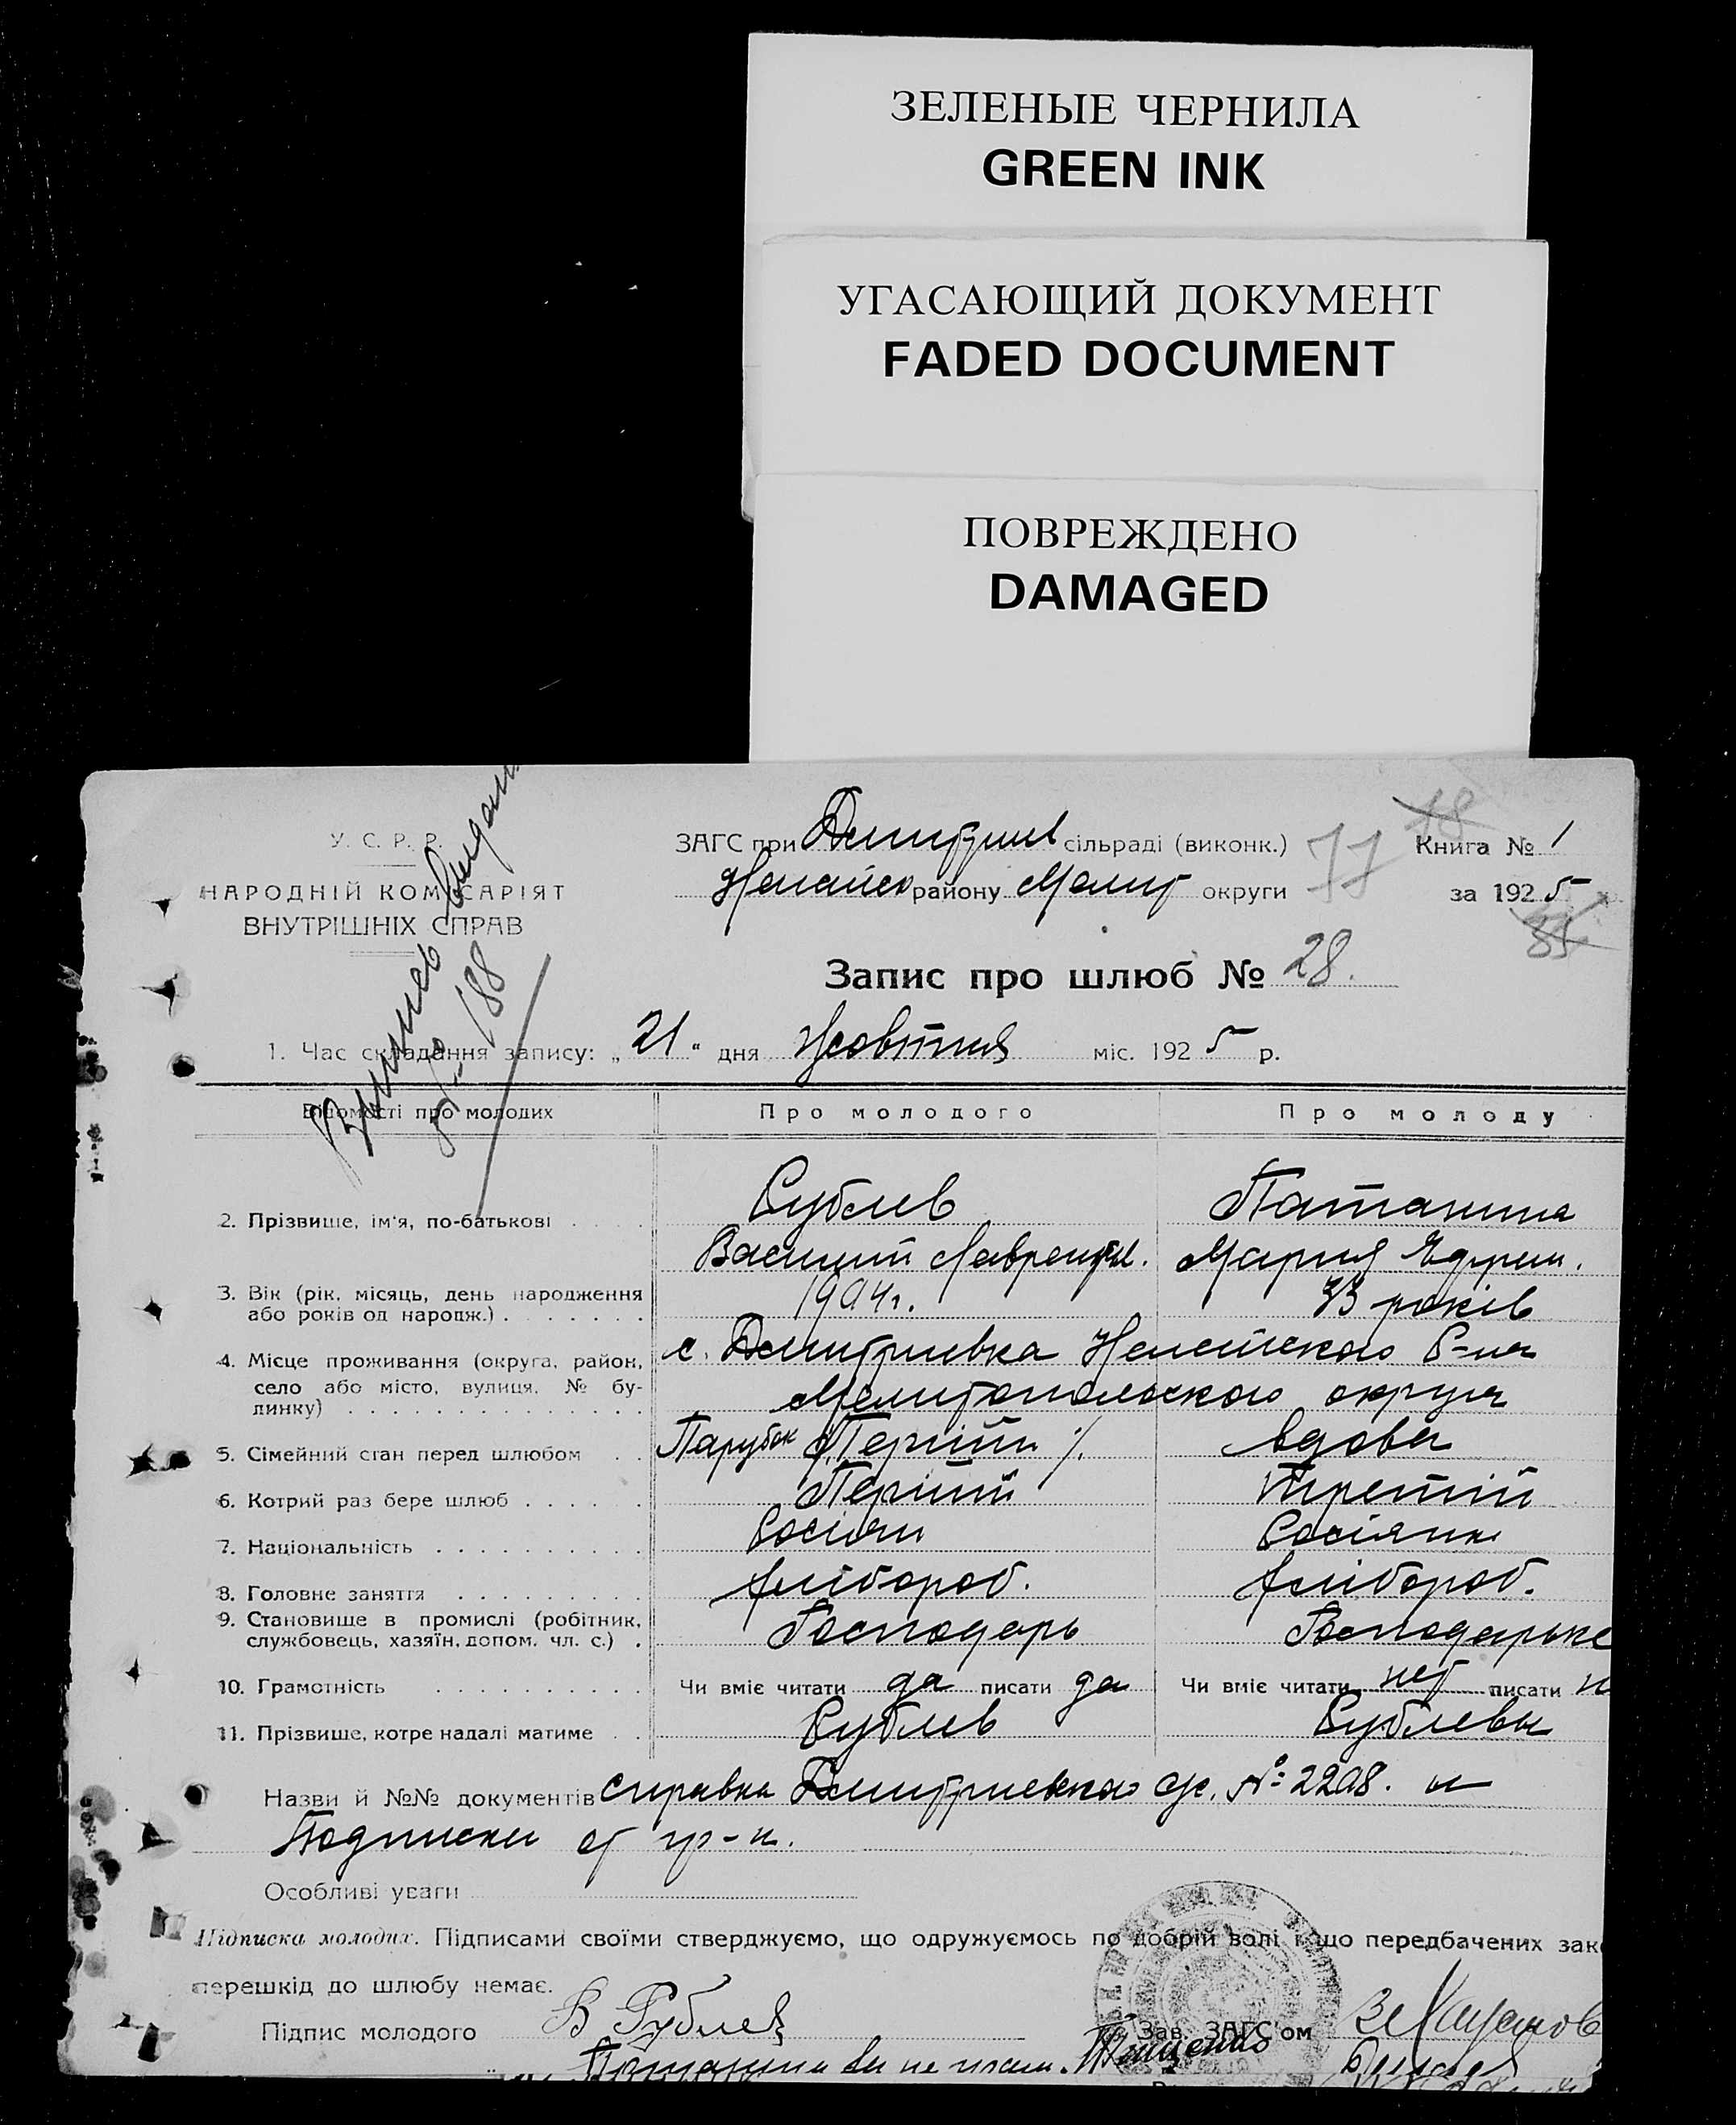 ЗЕЛЕНЫЕ ЧЕРНИЛА
GREEN INK
УГАСАЮЩИЙ ДОКУМЕНТ
FADED DOCUMENT
ПОВРЕЖДЕНО
DAMAGED
У. С. Р. Р.
НАРОДНІЙ КОМІСАРІЯТ
ВНУТРІШНІХ СПРАВ
ЗАГС при Дмитриев сільраді (виконк.)
району Мелит округи
77
18
Книга № 1
за 1925
85
Запис про шлюб № 28.
188
1. Час складання запису: „21“ дня Жовтня міс. 1925 р.
Відомості про молодих Про молодого Про молоду
2. Прізвище, ім'я, по-батькові Рублев Патанина
Василий Лаврентьев. Мария Ефрем.
3. Вік (рік, місяць, день народження
або років од народж.) 1904 г. 33 років
4. Місце проживання (округа, район, с. Дмитриевка Р-на
село або місто, вулиця, № бу-
динку) Мелитопольского округа
5. Сімейний стан перед шлюбом Парубок Перший вдова
6. Котрий раз бере шлюб Перший третій
7. Національність Росіян Росіянка
8. Головне заняття хлібороб. хлібороб.
9. Становище в промислі (робітник,
службовець, хазяїн, допом. чл. с.) Господарь Господарьке
10. Грамотність Чи вміє читати да писати да Чи вміє читати нет писати н
11. Прізвище, котре надалі матиме Рублев Рублевы
Назви й №№ документів справка Дмитриевкаго с/с. №: 2208. и
Подписки от гр-н.
Особливі уваги
Підписка молодих. Підписами своїми стверджуємо, що одружуємось по добрій волі і що передбачених зак
перешкід до шлюбу немає.
Підпис молодого В Рублев Зав. ЗАГС'ом